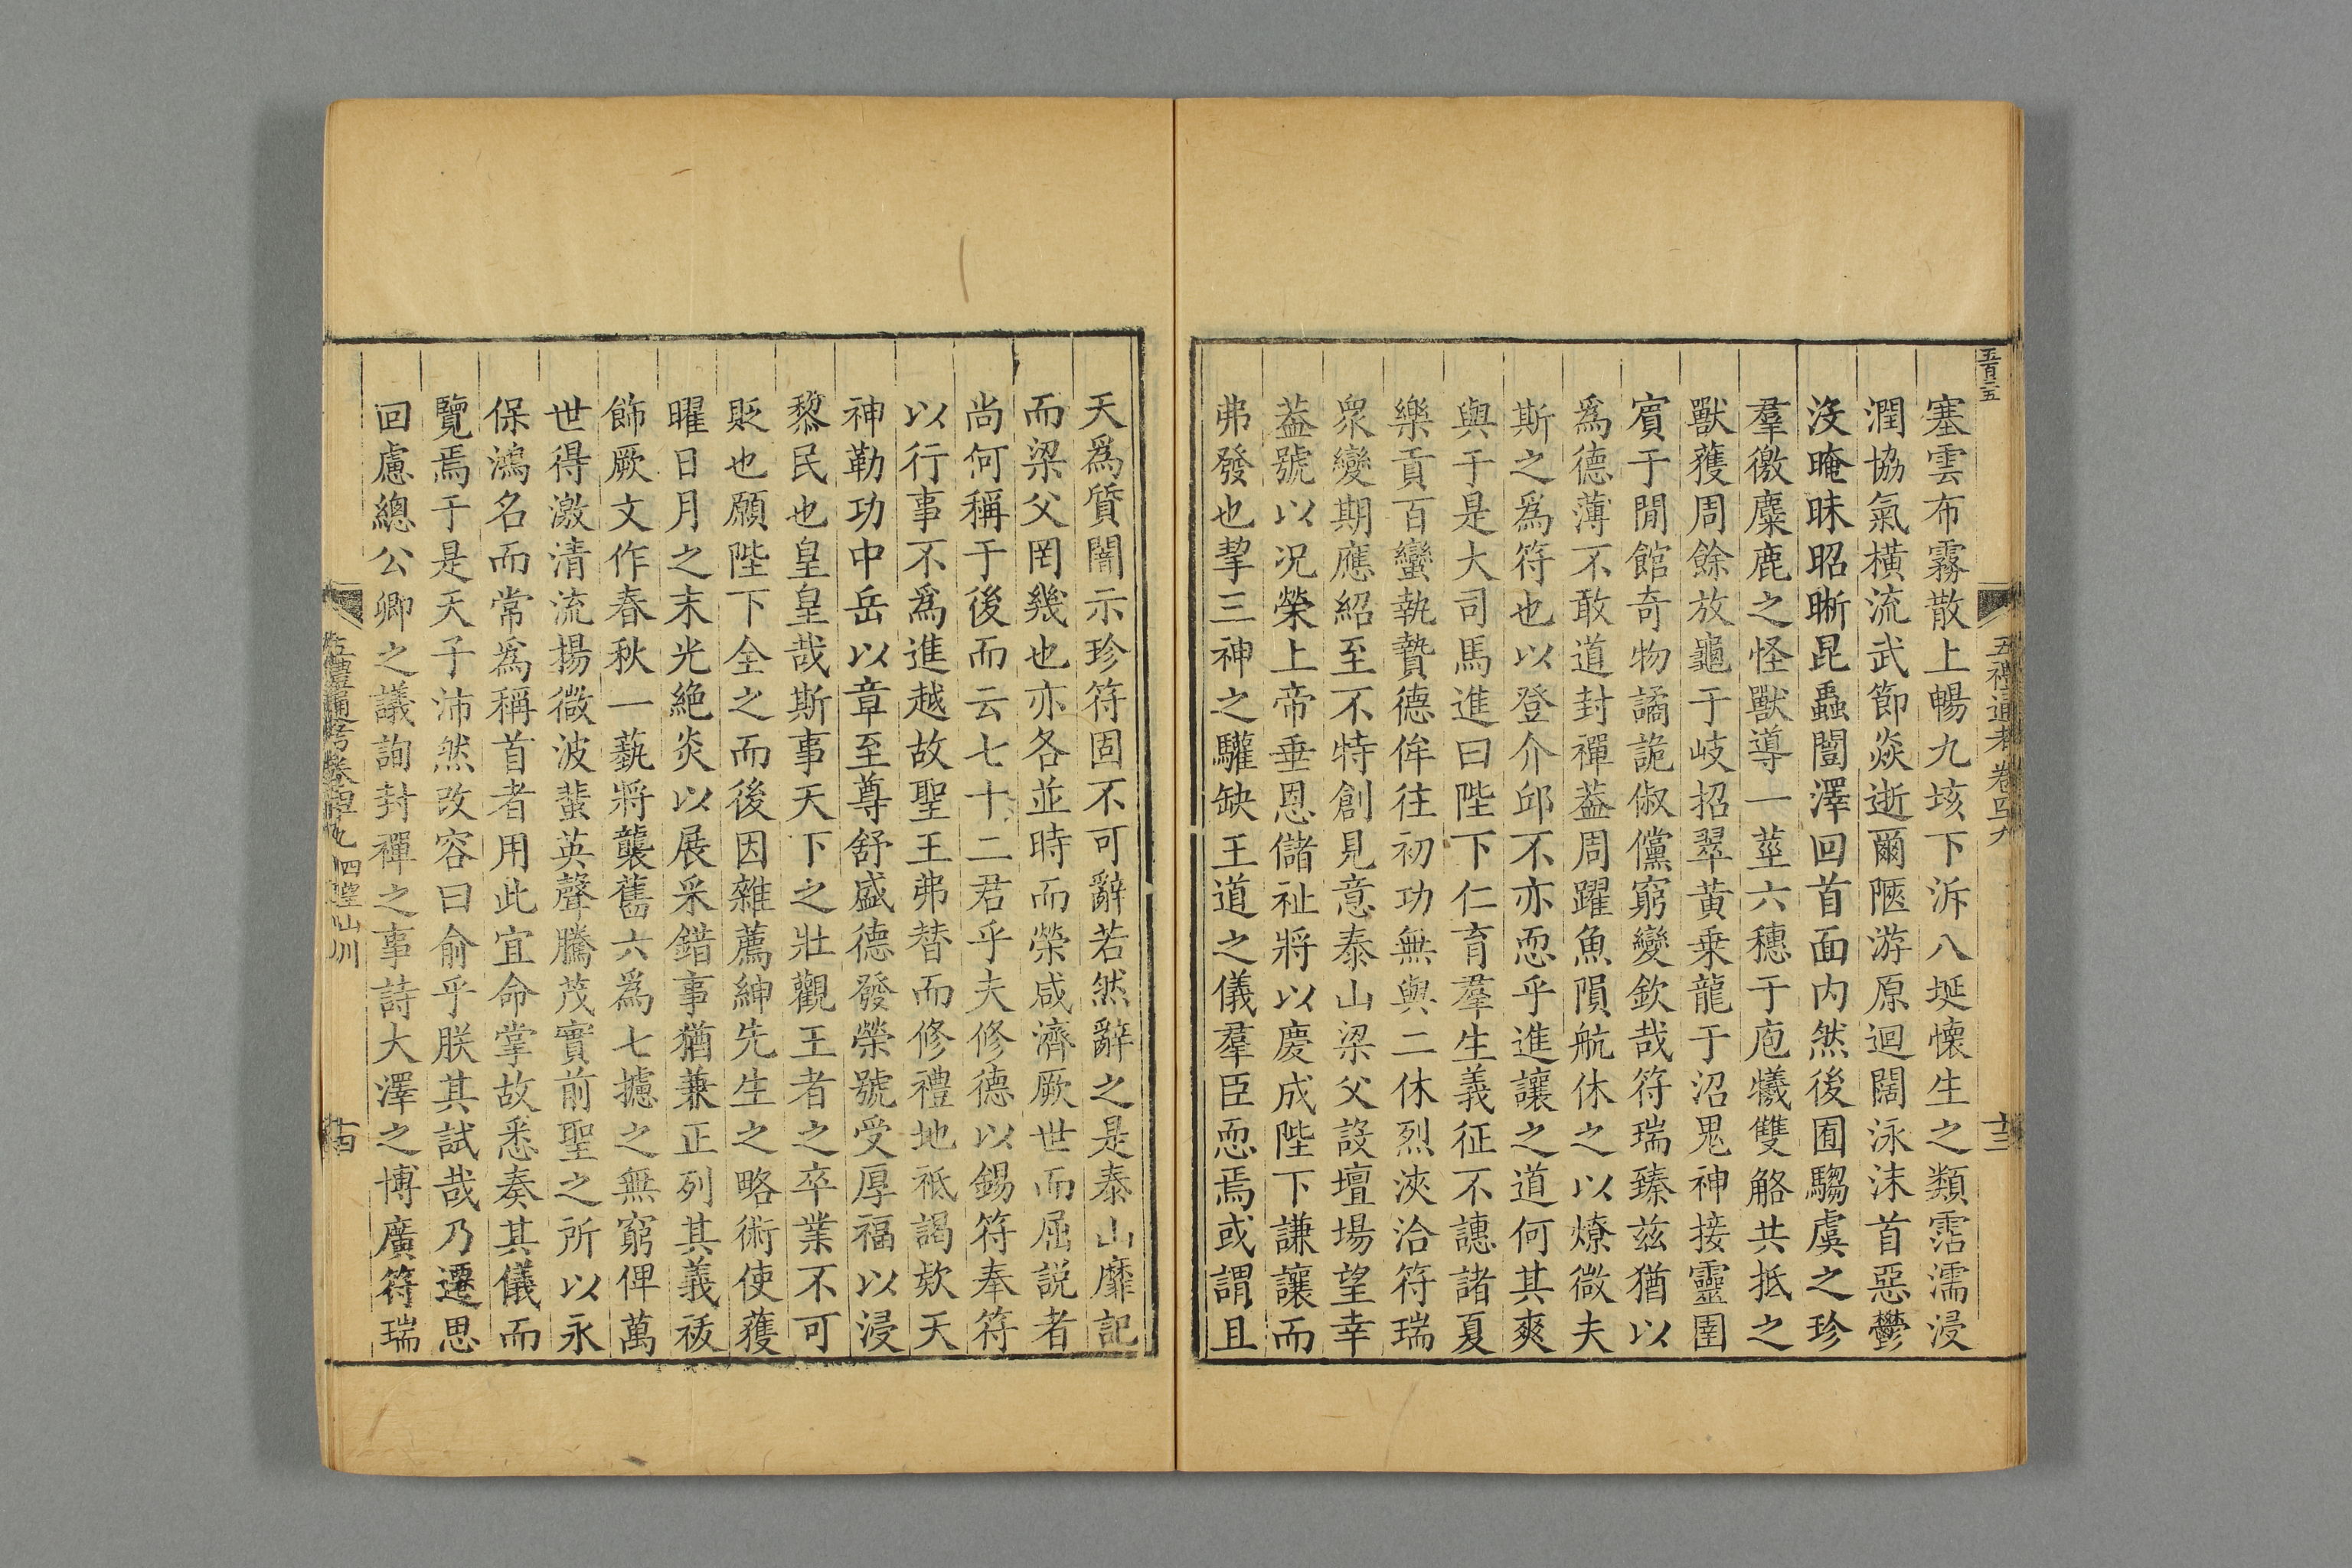 塞雲布霧散上暢九垓下泝八埏懷生之類霑濡浸
潤協氣橫流武節焱逝爾陿游原迴闊泳沫首惡鬱
沒晻昧昭晣昆蟲闓澤回首面内然後囿騶虞之珍
羣徼麋鹿之怪獸導一莖六穗于庖犧雙觡共抵之
獸獲周餘放龜于岐招翠黃乗龍于沼鬼神接靈圉
賓于閒館奇物譎詭俶儻窮變欽哉符瑞臻茲猶以
爲德薄不敢道封禪葢周躍魚隕航休之以燎微夫
斯之爲符也以登介邱不亦恧乎進讓之道何其爽
與于是大司馬進曰陛下仁育羣生義征不譓諸夏
樂貢百蠻執贄德侔往初功無與二休烈浹洽符瑞
衆變期應紹至不特創見意泰山梁父設壇場望幸
葢號以况榮上帝垂恩儲祉將以慶成陛下謙讓而
弗發也挈三神之驩缺王道之儀羣臣恧焉或謂且
天爲質闇示珍符固不可辭若然辭之是泰山靡記
而梁父罔幾也亦各並時而榮咸濟厥世而屈説者
尚何稱于後而云七十二君乎夫修德以錫符奉符
以行事不爲進越故聖王弗替而修禮地祇謁欵天
神勒功中岳以章至尊舒盛德發榮號受厚福以浸
黎民也皇皇哉斯事天下之壯觀王者之卒業不可
貶也願陛下全之而後因雜薦紳先生之略術使獲
曜日月之末光絶炎以展采錯事猶兼正列其義祓
飾厥文作春秋一藝將襲舊六爲七攄之無窮俾萬
世得激清流揚微波蜚英聲騰茂實前聖之所以永
保鴻名而常爲稱首者用此宜命掌故悉奏其儀而
覽焉于是天子沛然改容曰俞乎朕其試哉乃遷思
回慮總公卿之議詢封禪之事詩大澤之博廣符瑞
五禮通考卷四十九 四望山川
十四
五禮通考 卷四十九
十三